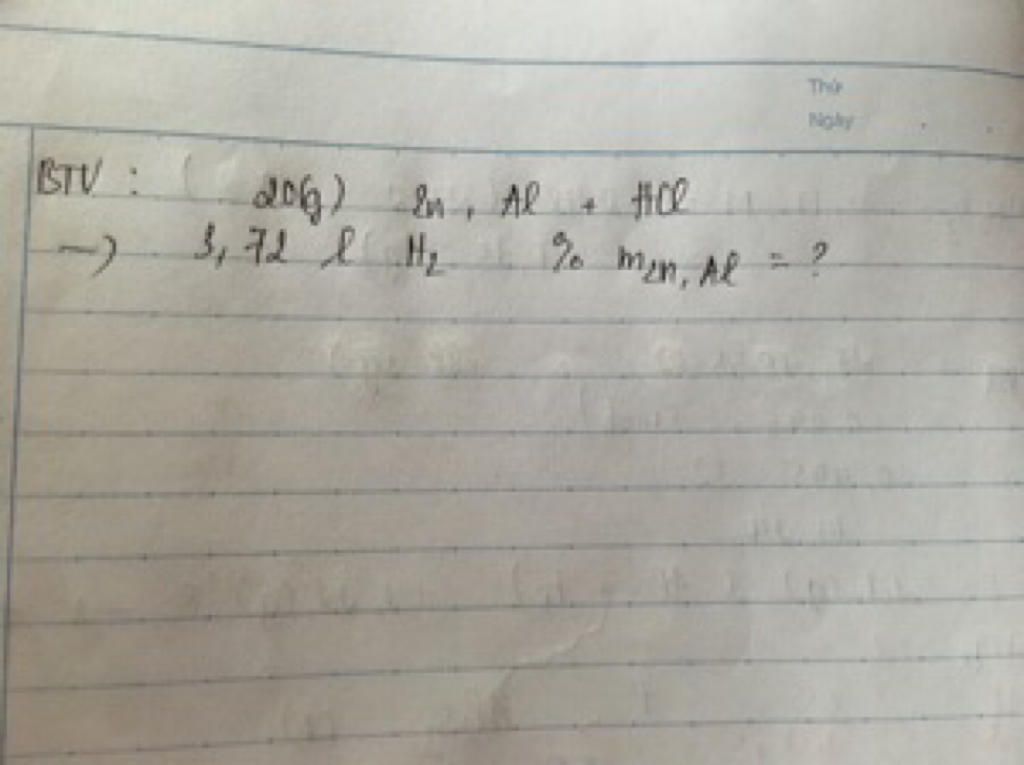 Thứ
Ngày
BTV : 20(g) Zn, Al + HCl
→ 3,72 l H₂ % mZn, Al = ?